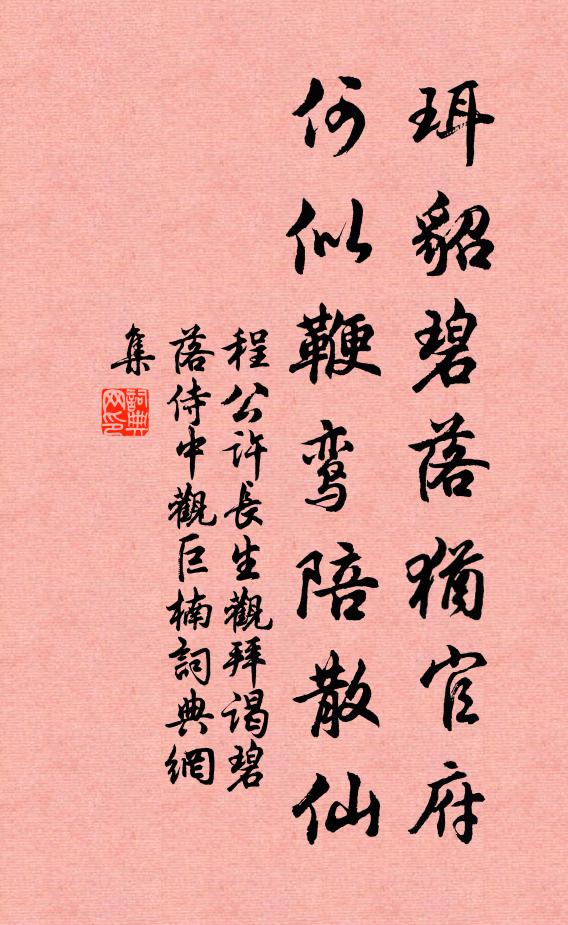 珥貂碧落猶官府
何似鞭鸾陪散仙
程公许長生觀拜谒碧
落侍中觀巨楠詞典網
集
詞典
网印